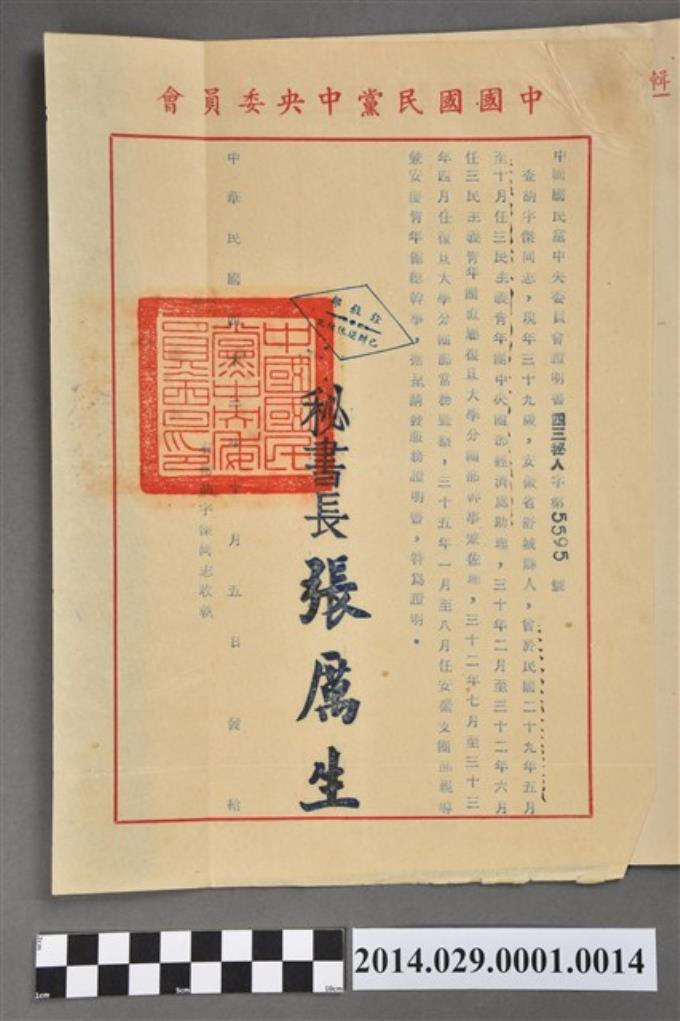 中國國民黨中央委員會
中國國民黨中央委員會證明書四三祕人字第5595號
查胡宇傑同志，現年三十九歲，安徽省舒城縣人，曾於民國二十九年五月
至十月任三民主義青年團中央團部經濟處助理，三十年二月至三十二年六月
任三民主義青年團直屬復旦大學分團部幹事兼佐理，三十二年七月至三十三
年四月任復旦大學分團部常務監察，三十五年一月至八月任安慶文團部視導
兼安慶青年館總幹事。茲據請發服務證明書，特為證明。
秘書長 張厲生
宇傑同志收執
中華民國四十三年十月五日發給
中國國民黨中央委員會印
2014.029.0001.0014
1cm
5cm
10cm
輯